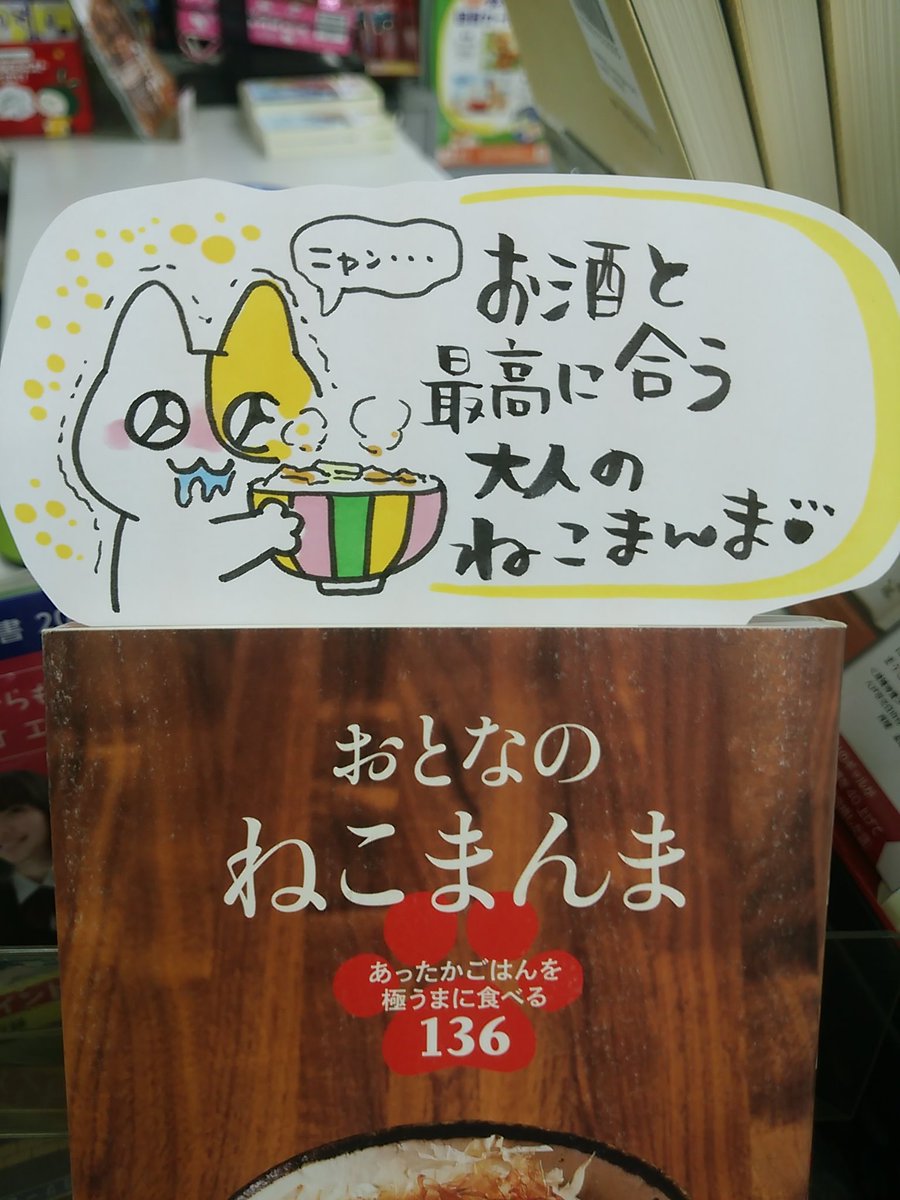 ニャン・・・
お酒と
最高に合う
大人の
ねこまんま
おとなの
ねこまんま
あったかごはんを
極うまに食べる
136
書 20